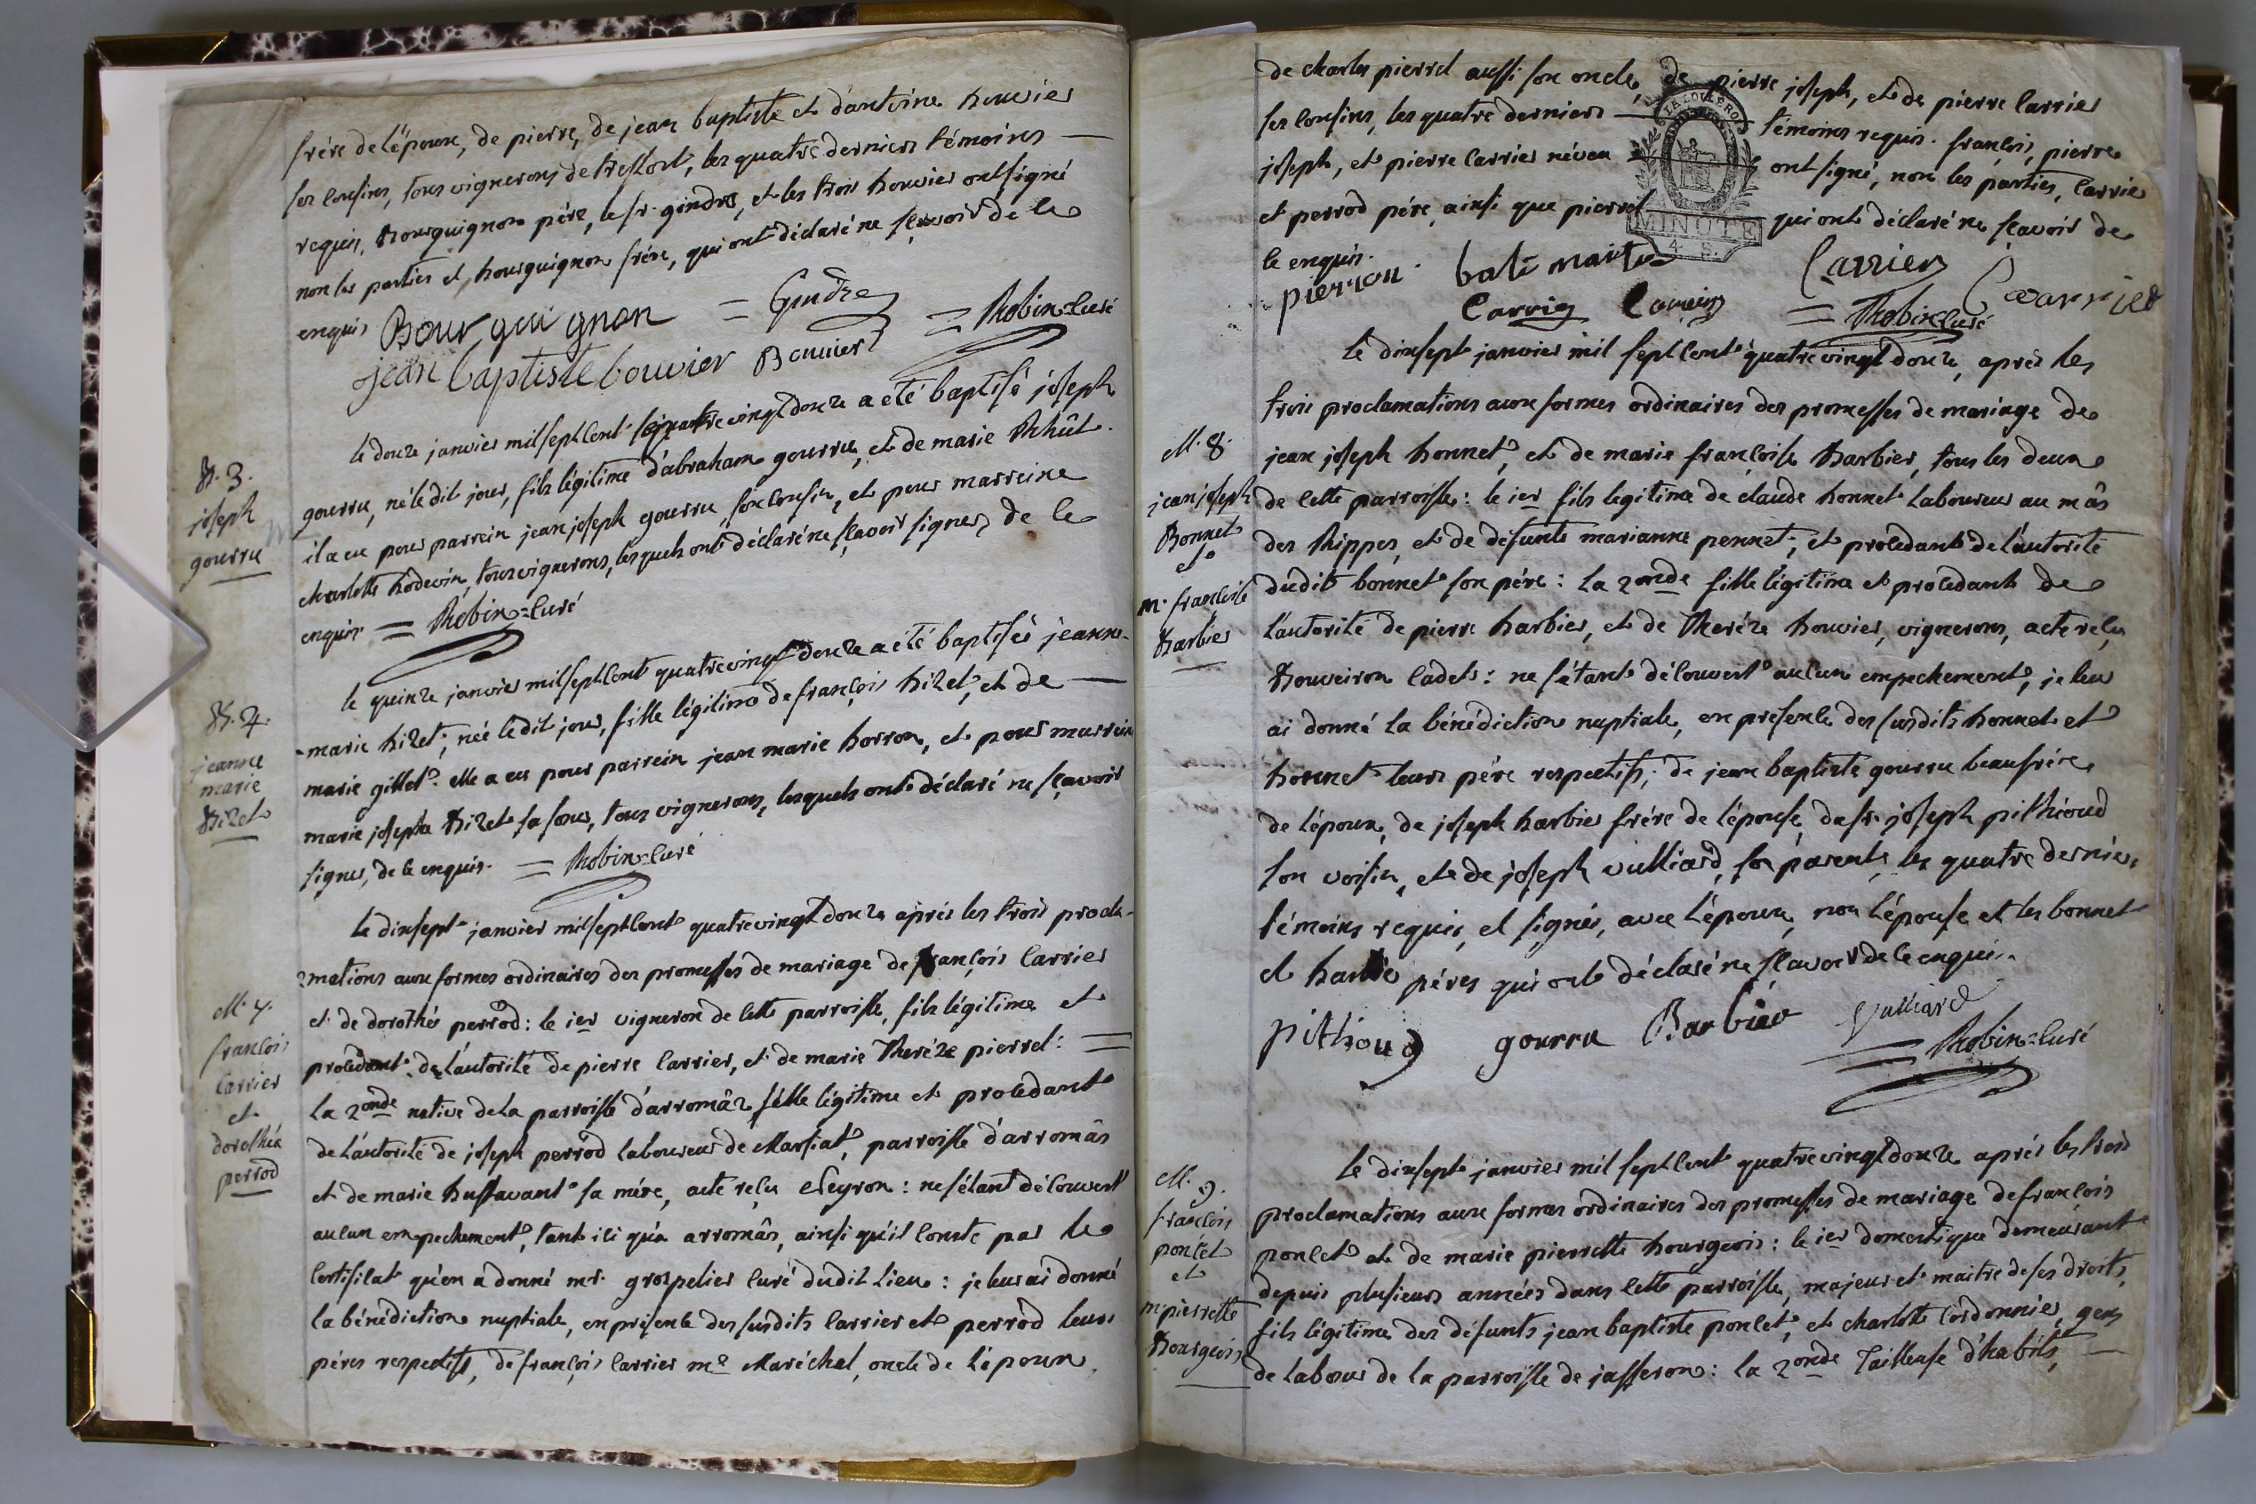 frére de l'époux, de pierre, de jean baptiste et d'antoine bouvier
ses cousins, tous vignerons de treffort, les quatre derniers témoins
requis, bourguignon pére, le sr. gindre, et les trois bouvier ont signé
non les parties et bourguignon frére, qui ont déclaré ne sçavoir de ce
enquis
Bourguignon = Gindre
jean baptiste bouvier Bouvier = Robin curé
B. 3.
joseph
gourru
le douze janvier mil sept cent quatre vingt douze a été baptisé joseph
gourru, né le dit jour, fils légitime d'abraham gourru, et de marie
il a eu pour parrein jean joseph gourru, son cousin, et pour marreine
charlotte bodevin, tous vignerons, lesquels ont déclaré ne sçavoir signer, de ce
enquis = Robin curé
B. 4.
jeanne
marie
Bizet
le quinze janvier mil sept cent quatre vingt douze a été baptisée jeanne-
-marie bizet, née le dit jour, fille légitime de françois bizet, et de
marie gillet. elle a eu pour parrein jean marie borron, et pour marreine
marie josephe Bizet sa soeur, tous vignerons, lesquels ont déclaré ne sçavoir
signer, de ce enquis. = Robin curé
M. 7.
françois
Carrier
et
dorothée
perrod
le dixsept janvier mil sept cent quatre vingt douze après les trois procla-
mations aux formes ordinaires des promesses de mariage de françois carrier
et de dorothée perrod: le 1er vigneron de cette parroisse, fils légitime et
procédant de l'autorité de pierre carrier, et de marie Theréze pierrel: =
la 2onde native de la parroisse d'arromâs fille légitime et procédant
de l'autorité de joseph perrod laboureur de Marsiat, parroisse d'arromâs
et de marie bussavant sa mére, acte reçu Cleyron: ne s'étant découvert
aucun empechement, tant ici qu'a arromâs, ainsi qu'il conste par le
certificat qu'en a donné mr. grospelier curé dudit lieu: je leur ai donné
la bénédiction nuptiale, en présence des susdits carrier et perrod leurs
péres respectifs, de françois carrier me Maréchal, oncle de l'époux,
de charles pierrel aussi son oncle, de pierre joseph, et de pierre carrier
ses cousins, les quatre derniers témoins requis. françois, pierre
joseph, et pierre carrier néveu ont signé, non les parties, carrier
et perrod pére, ainsi que pierrel qui ont déclaré ne sçavoir de
ce enquis.
MINUTE
4 S.
Carrier
Carrier Carrier = Robin curé Carrier
M. 8.
jean joseph
Bonnet
et
m. françoise
Barbier
le dixsept janvier mil sept cent quatre vingt douze, après les
trois proclamations aux formes ordinaires des promesses de mariage de
jean joseph bonnet, et de marie françoise Barbier, tous les deux
de cette parroisse: le 1er fils legitime de claude bonnet laboureur au mâs
des Rippes, et de défunte marianne pennet; et procédant de l'autorité
dudit bonnet son pére: la 2onde fille légitime et procédant de
l'autorité de pierre barbier, et de Theréze bouvier, vignerons, acte reçu
Bouveiron cadet: ne s'étant découvert aucun empechement, je leur
ai donné la bénédiction nuptiale, en présence des susdits bonnet et
bonnet leurs pére respectifs; de jean baptiste gourru beaufrére
de l'époux, de joseph barbier frére de l'épouse, du sr. joseph pithioud
son voisin, et de joseph vulliard, son parent, les quatre derniers
témoins requis, et signés, avec l'époux, non l'épouse et les bonnet
et barbier péres qui ont déclaré ne sçavoir de ce enquis.
pithioud gourru Barbier Vulliard
= Robin curé
M. 9.
françois
poncet
et
m pierrette
Bourgeois
le dixsept janvier mil sept cent quatre vingt douze après les trois
proclamations aux formes ordinaires des promesses de mariage de françois
poncet et de marie pierrette bourgeois: le 1er domestique demeurant
depuis plusieurs années dans cette parroisse, majeur et maitre de ses droits,
fils légitime des défunts jean baptiste poncet, et charlotte cordonnier, gens
de labour de la parroisse de jasseron: la 2onde Tailleuse d'habits,